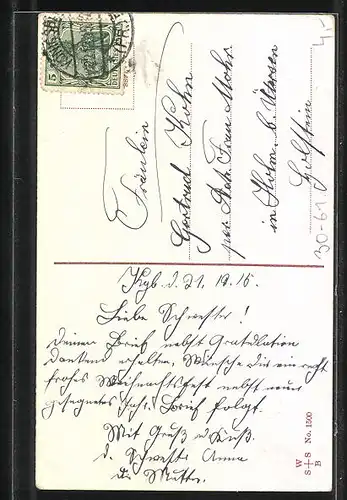 Fräulein
Gertrud Kohn
per Adr. Frau Mohr
in Holm b. Ütersen
Holstein
30-61
4,-
5
Kgb. d. 21. 19.15.
Liebe Schwester!
Deinen Brief nebst Gratulation
dankend erhalten. Wünsche dir ein recht
frohes Weihnachtsfest nebst neues
gesegnetes Jahr. Brief folgt.
Mit Gruß u. Kuß.
d. Schwester Anna
u. Mutter.
W
S+S No. 1500
B